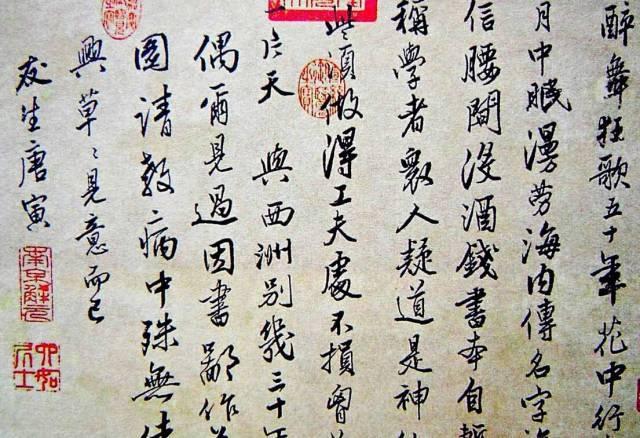 醉舞狂歌五十年花中行
月中眠漫勞海内傳名字
信腰間没酒錢書本自
稱學者眾人疑道是神
些須做得工夫處不損胷
片天 與西洲别幾三十年
偶爾見過因書鄙作
圖請教病中殊無佳
興草〻見意而已
友生唐寅
南京解元
六如居士